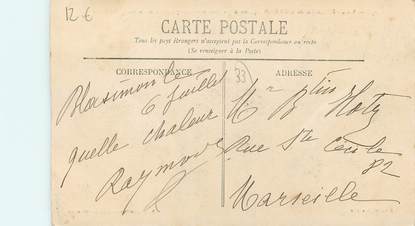 12 €
CARTE POSTALE
Tous les pays étrangers n'acceptent pas la Correspondance au recto
(Se renseigner à la Poste)
CORRESPONDANCE
Blasimon le
6 Juillet
quelle chaleur
Raymond
33
ADRESSE
Rue Ste Cécile
82
Marseille